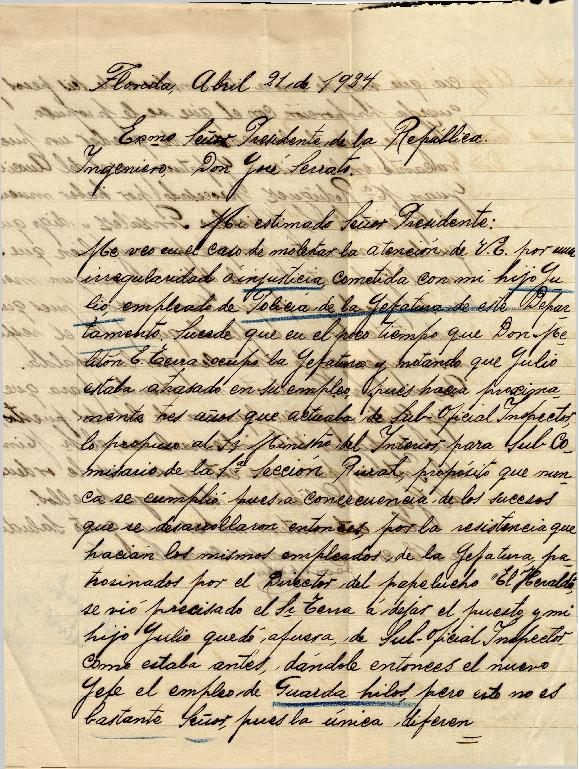 Florida, Abril 21, de 1924.
Exmo Señor Presidente de la República.
Ingeniero, Don José Serrato.
Mi estimado Señor Presidente:
Me veo en el caso de molestar la atención, de V.E. por una
irregularidad ó injusticia, cometida con mi hijo Ju
lio, empleado de Policía de la Gefatura de este Depar
tamento. Sucede que en el poco tiempo que Don Me
litón E. Terra ocupó la Gefatura y notando que Julio
estaba atrasado en su empleo, pues hacia proxima
mente tres años que actuaba, de Sub-Oficial Inspector,
lo propuso al Sr. Ministro del Interior, para Sub-Co
misario, de la 1ª Sección Rural, propósito que nun
ca se cumplió pues a concecuencia, de los sucesos
que se desarrollaron entonces, por la resistencia que
hacian los mismos empleados, de la Gefatura, pa
trosinados por el Director del papelucho "El Heraldo,
se vió precisado el Sr. Terra á dejar el puesto, y mi
hijo Julio quedó, afuera, de Sub-Oficial Inspector,
como estaba antes, dándole entonces el nuevo
Gefe el empleo, de Guarda hilos pero esto no es
bastante Señor, pues la única, diferen